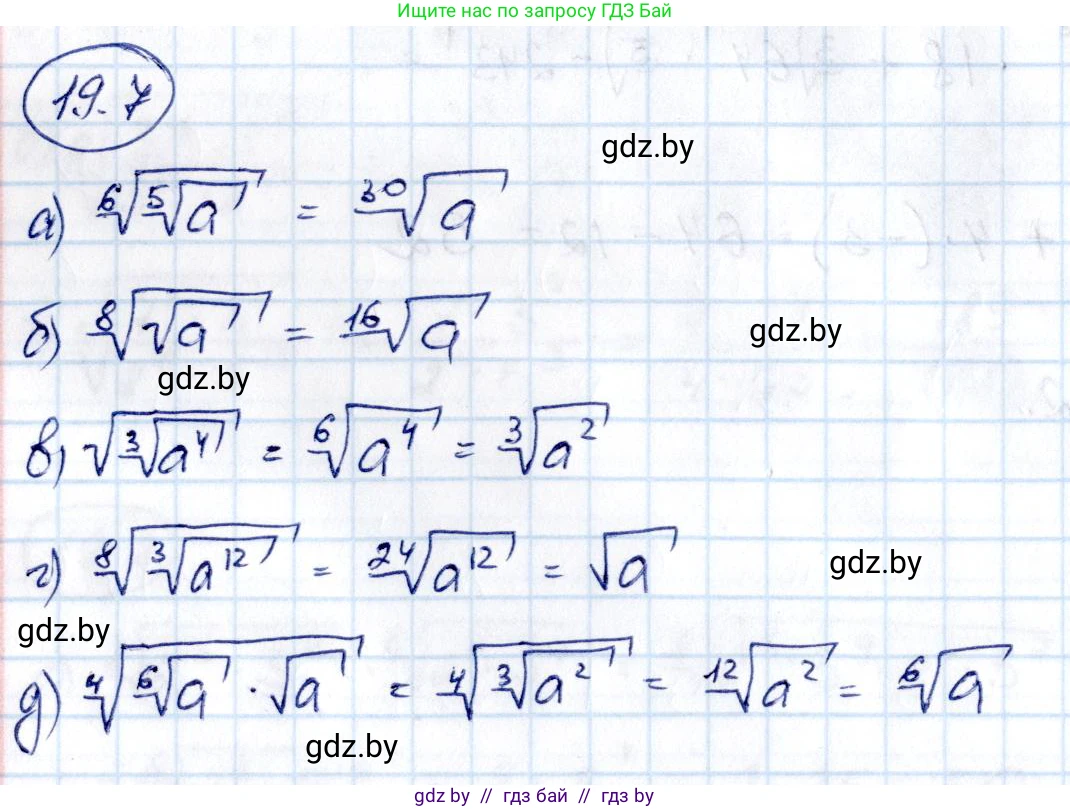 Ищите нас по запросу ГДЗ Бай
19.7
gdz.by
а) ⁶√(⁵√a) = ³⁰√a
б) ⁸√(√a) = ¹⁶√a
gdz.by
gdz.by
в) √(³√(a⁴)) = ⁶√(a⁴) = ³√(a²)
г) ⁸√(³√(a¹²)) = ²⁴√(a¹²) = √a
gdz.by
gdz.by
д) ⁴√(⁶√a · √a) = ⁴√(³√(a²)) = ¹²√(a²) = ⁶√a
gdz.by
gdz.by // гдз бай // гдз.by